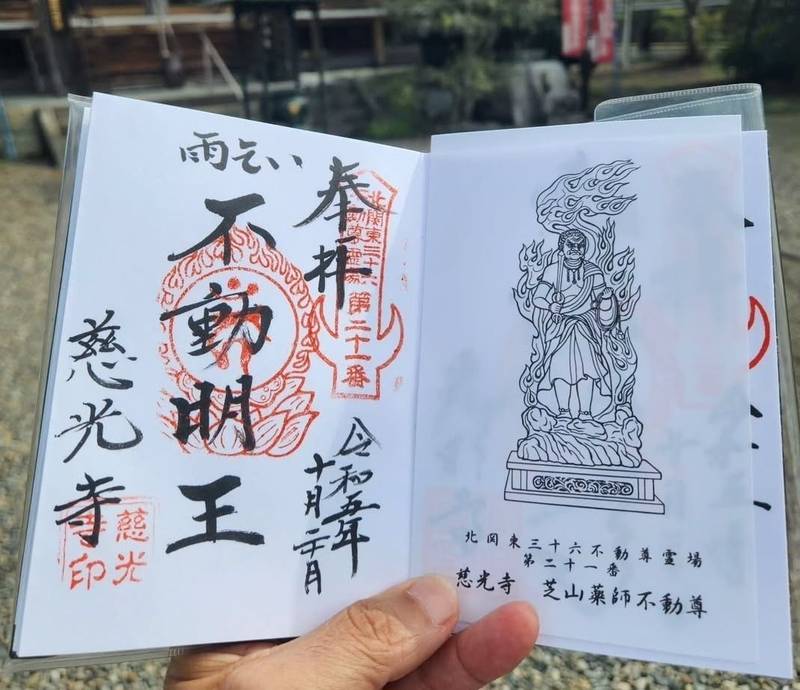 奉拝
雨乞い
不動明王
慈光寺
令和五年
十月二十月
北関東三十六
不動尊霊場
第二十一番
慈光
寺印
北関東三十六不動尊霊場
第二十一番
慈光寺 芝山薬師不動尊